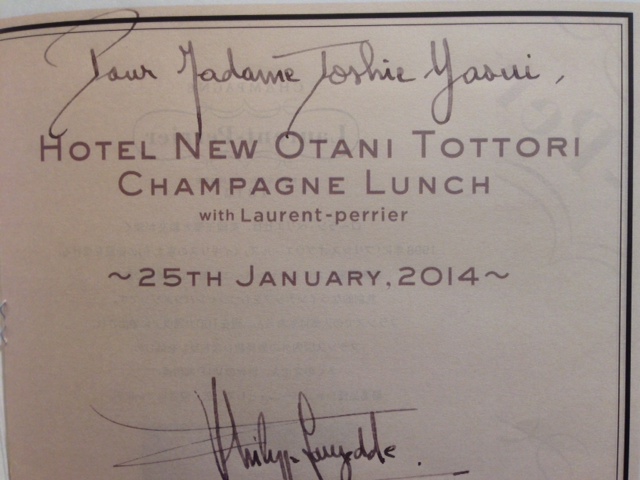 Pour Madame Toshie Yaoui,
HOTEL NEW OTANI TOTTORI
CHAMPAGNE LUNCH
with Laurent-perrier
~25TH JANUARY, 2014~